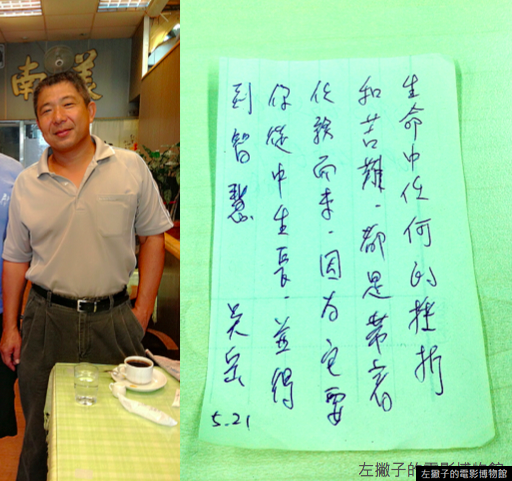 南美
生命中任何的挫折
和苦難，都是帶著
任務而來，因為它要
你從中生長，並得
到智慧
吳岳
5.21
左撇子的電影博物館
左撇子的電影博物館